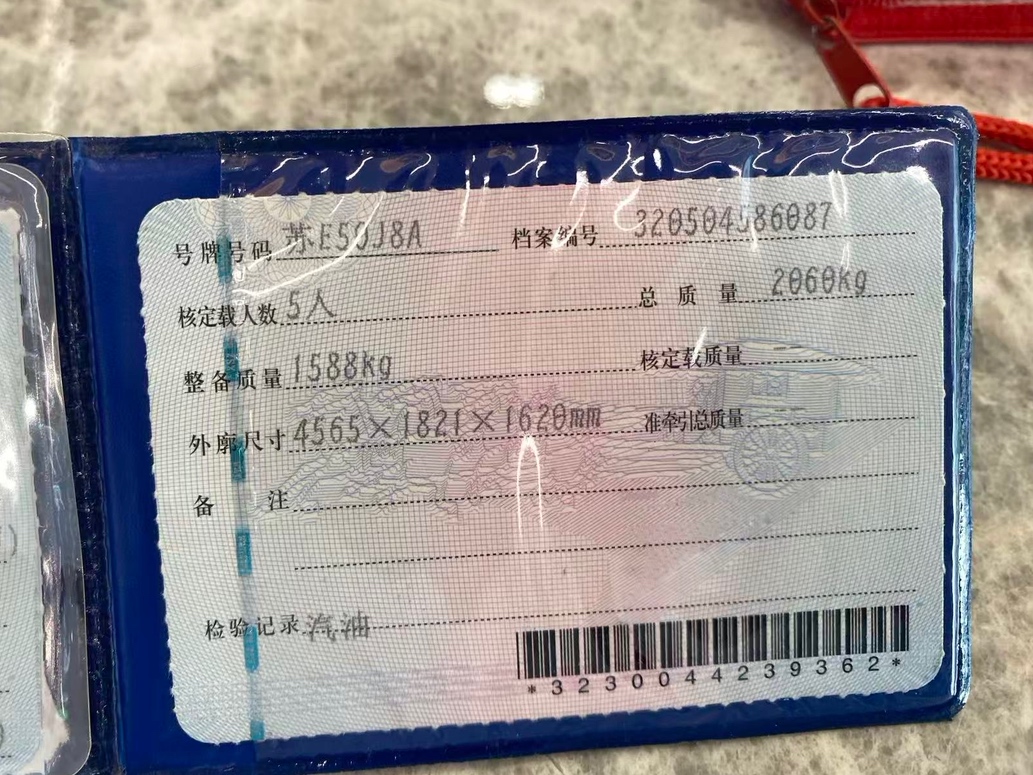 号牌号码 苏E59J8A 档案编号 320504586087
核定载人数 5人 总质量 2060kg
整备质量 1588kg 核定载质量
外廓尺寸 4565×1821×1620mm 准牵引总质量
备注
检验记录 汽油
*3230044239362*